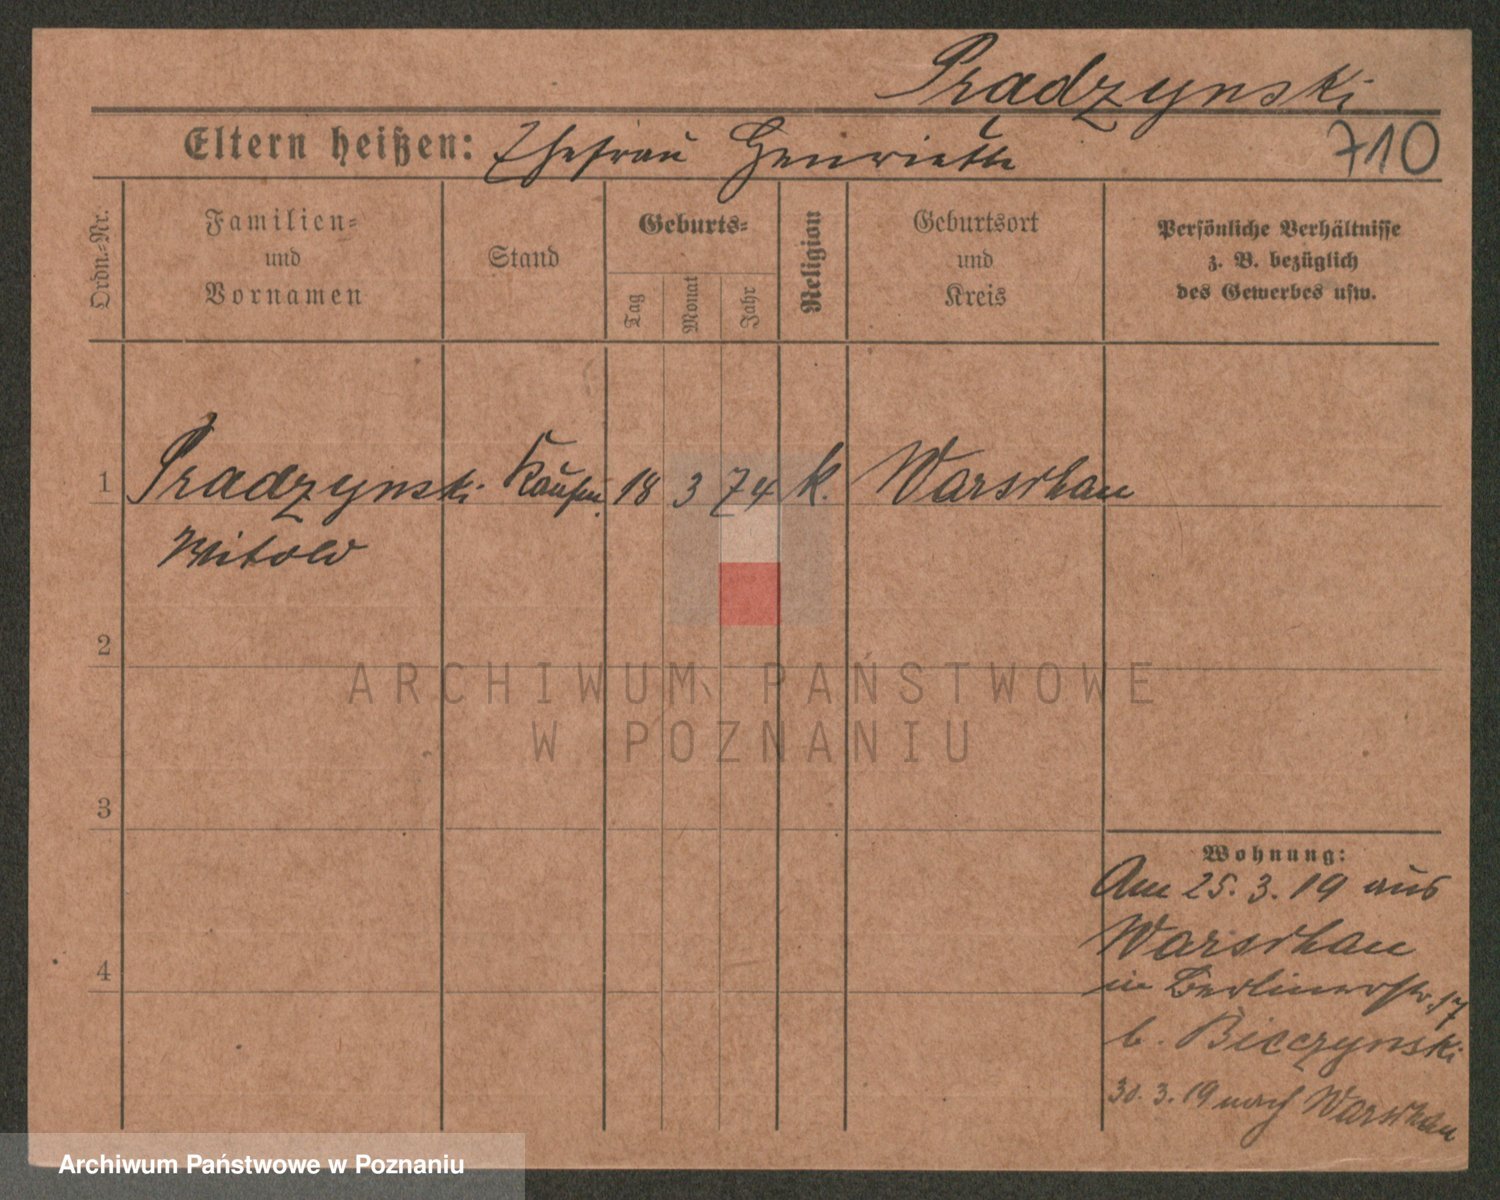 Pradzynski
Eltern heißen: Ehefrau Henriette
710
Ordn.=Nr.
Familien=
und
Vornamen
Stand
Geburts=
Tag
Monat
Jahr
Religion
Geburtsort
und
Kreis
Persönliche Verhältnisse
z. B. bezüglich
des Gewerbes usw.
1 Pradzynski Kaufm. 18 3 74 k. Warschau
Witold
2
ARCHIWUM PAŃSTWOWE
W POZNANIU
3
Wohnung:
Am 25. 3. 19 aus
Warschau
4
in Berlinerstr. 17
b. Bieczynski
30. 3. 19 nach Warschau
Archiwum Państwowe w Poznaniu